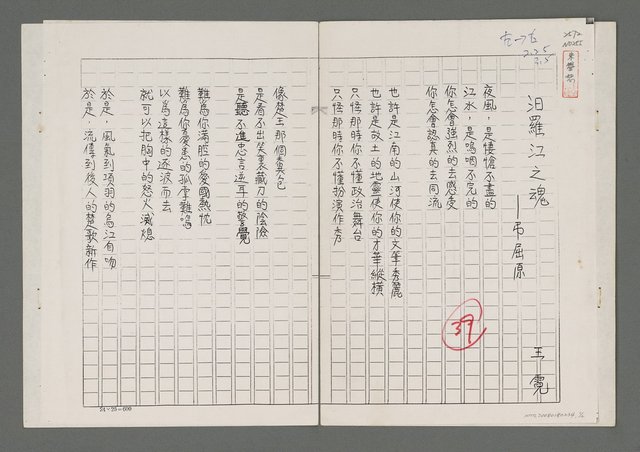 汨羅江之魂
—弔屈原
王霓
夜風，是悽愴不盡的
江水，是嗚咽不完的
你怎會強烈的去感受
你怎會認真的去同流
也許是江南的山河使你的文筆秀麗
也許是故土的地靈使你的才華縱橫
只怪那時你不懂政治舞台
只怪那時你不懂扮演作秀
像楚王那個糞包
是看不出笑裏藏刀的陰險
是聽不進忠言逆耳的警覺
難為你滿腔的愛國熱忱
難為你憂患的孤掌難鳴
以為這樣的逐波而去
就可以把胸中的怒火滅熄
於是，風氣到項羽的烏江自吻
於是，流傳到後人的楚歌新作
39
24×25=600